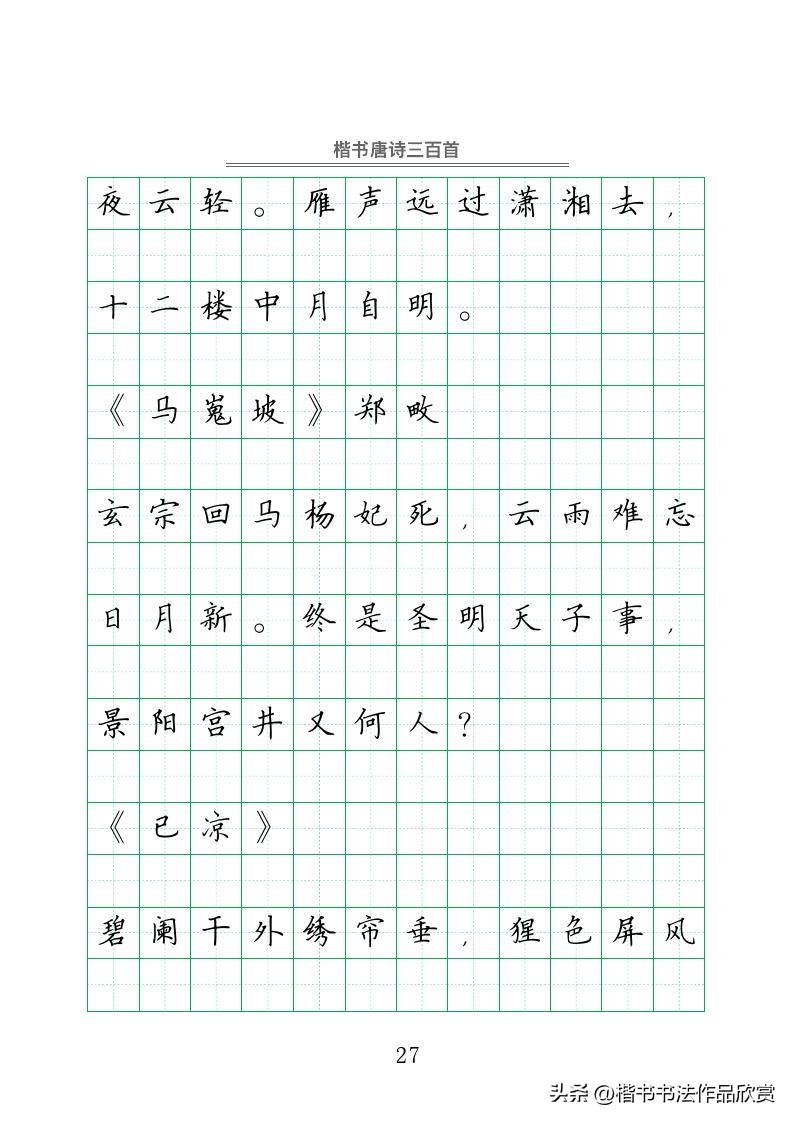 楷书唐诗三百首
夜云轻。雁声远过潇湘去，
十二楼中月自明。
《马嵬坡》郑畋
玄宗回马杨妃死，云雨难忘
日月新。终是圣明天子事，
景阳宫井又何人？
《已凉》
碧阑干外绣帘垂，猩色屏风
27
头条 @楷书书法作品欣赏